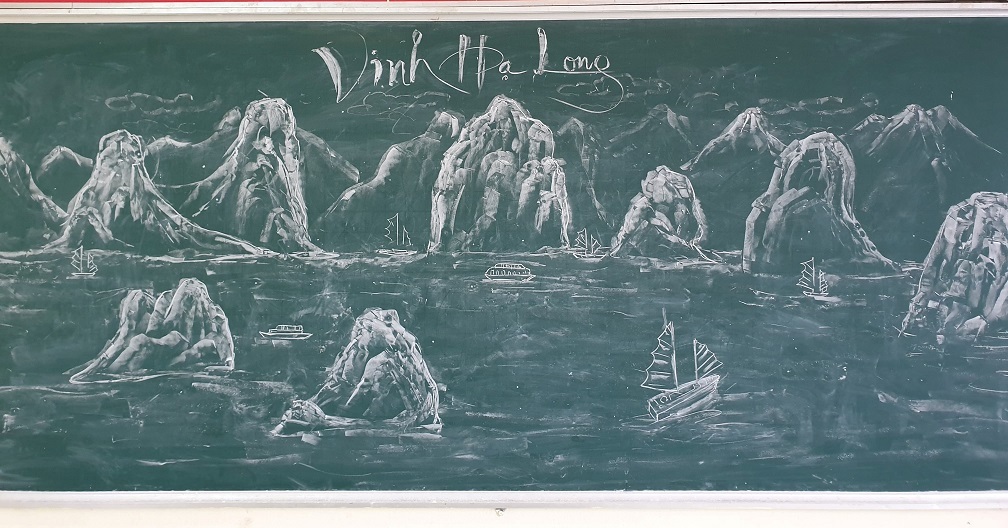 Vịnh Hạ Long